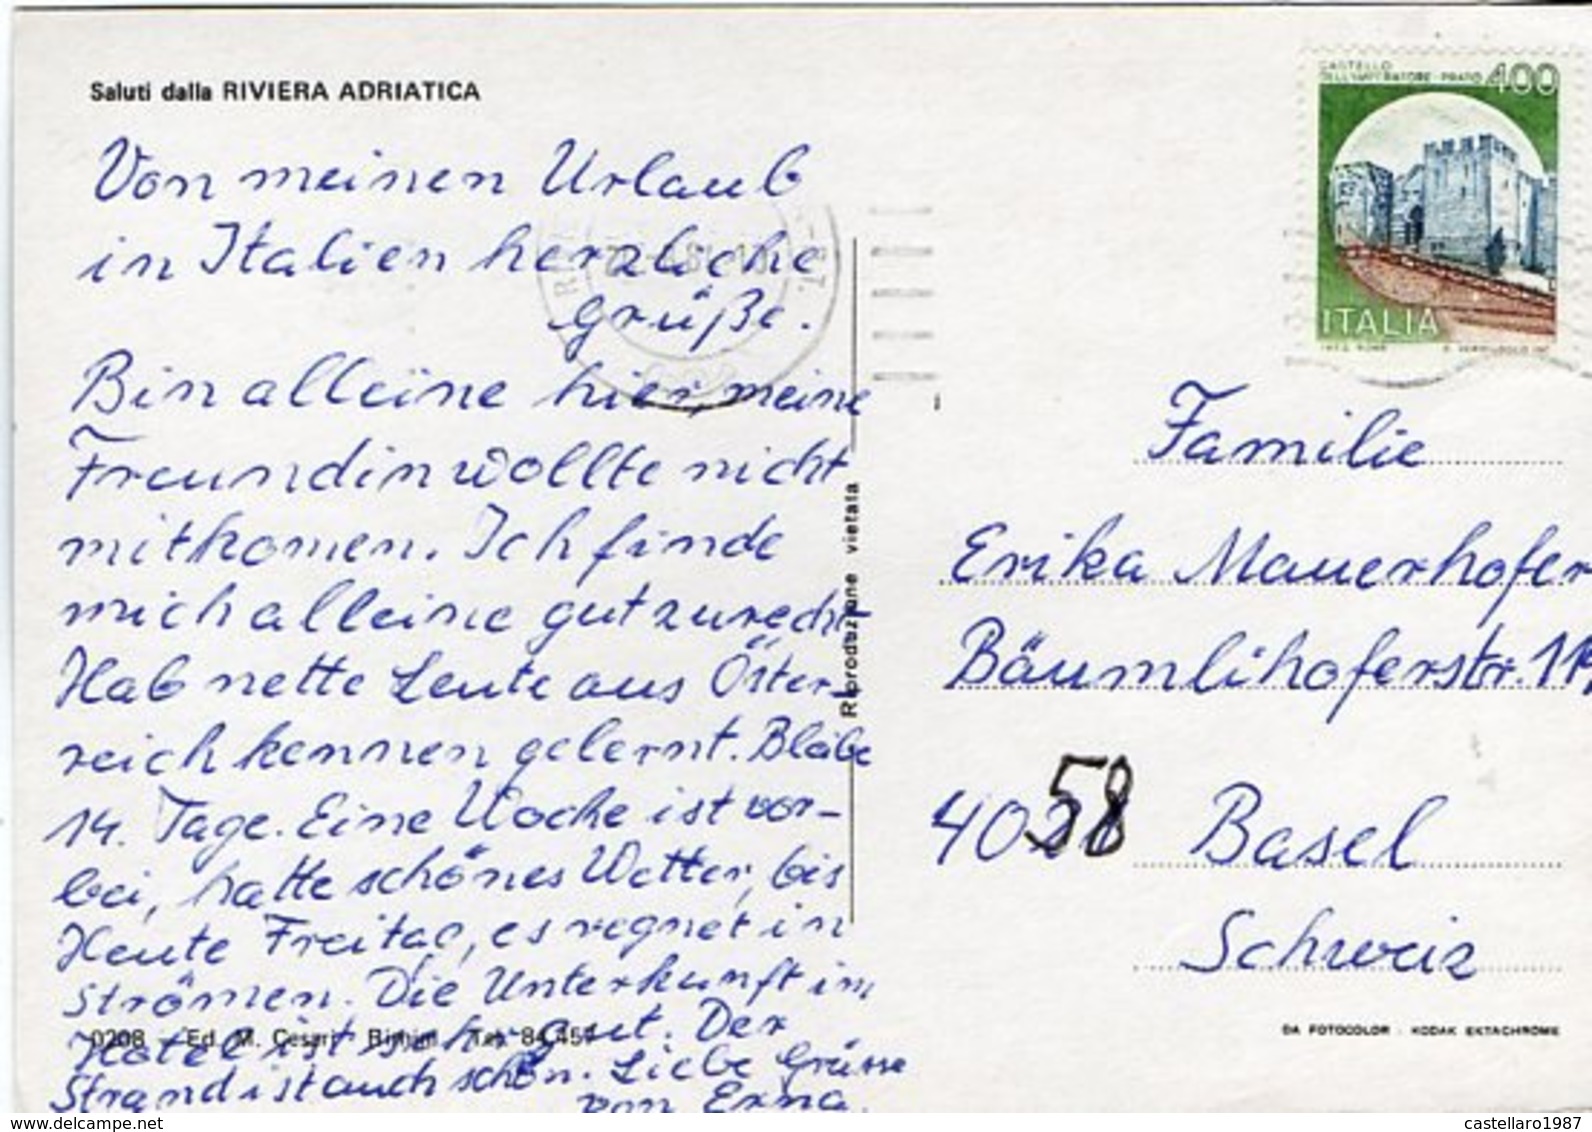 Saluti dalla RIVIERA ADRIATICA
Von meinen Urlaub
in Italien herzliche
Grüße.
Bin alleine hier, meine
Freundin wollte nicht
mitkomen. Ich finde
mich alleine gut zurecht.
Hab nette Leute aus Öster-
reich kennen gelernt. Bleibe
14. Tage. Eine Woche ist vor-
bei, hatte schönes Wetter, bis
Heute Freitag, es regnet in
Strömen. Die Unterkunft im
Hotel ist sehr gut. Der
Strand ist auch schön. Liebe Grüsse
von Erna.
0208 - Ed. M. Cesari - Rimini Tel. 84.457
Riproduzione vietata
CASTELLO
DELL'IMPERATORE · PRATO 400
ITALIA
Familie
Erika Mauerhofer
Bäumlihoferstr.
4058 Basel
Schweiz
DA FOTOCOLOR · KODAK EKTACHROME
www.delcampe.net
castellaro1987